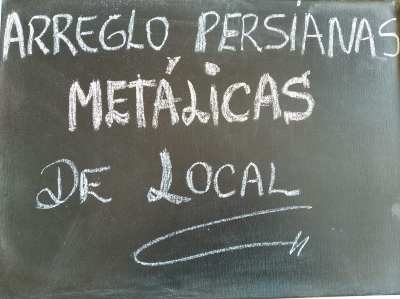 ARREGLO PERSIANAS
METÁLICAS
DE LOCAL